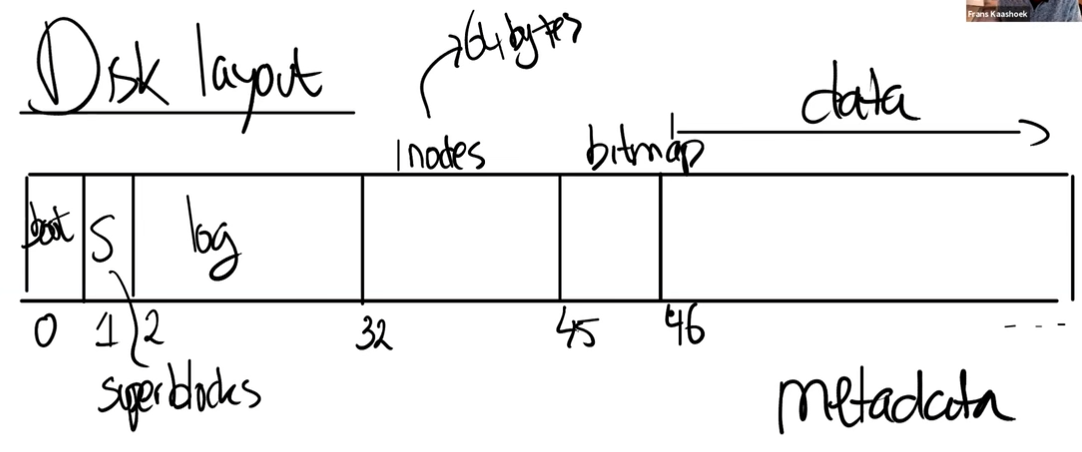 Frans Kaashoek
Disk layout
→64 bytes
data
Inodes
bitmap
boot S log
0 1 2 32 45 46 ----
superblocks
metadata